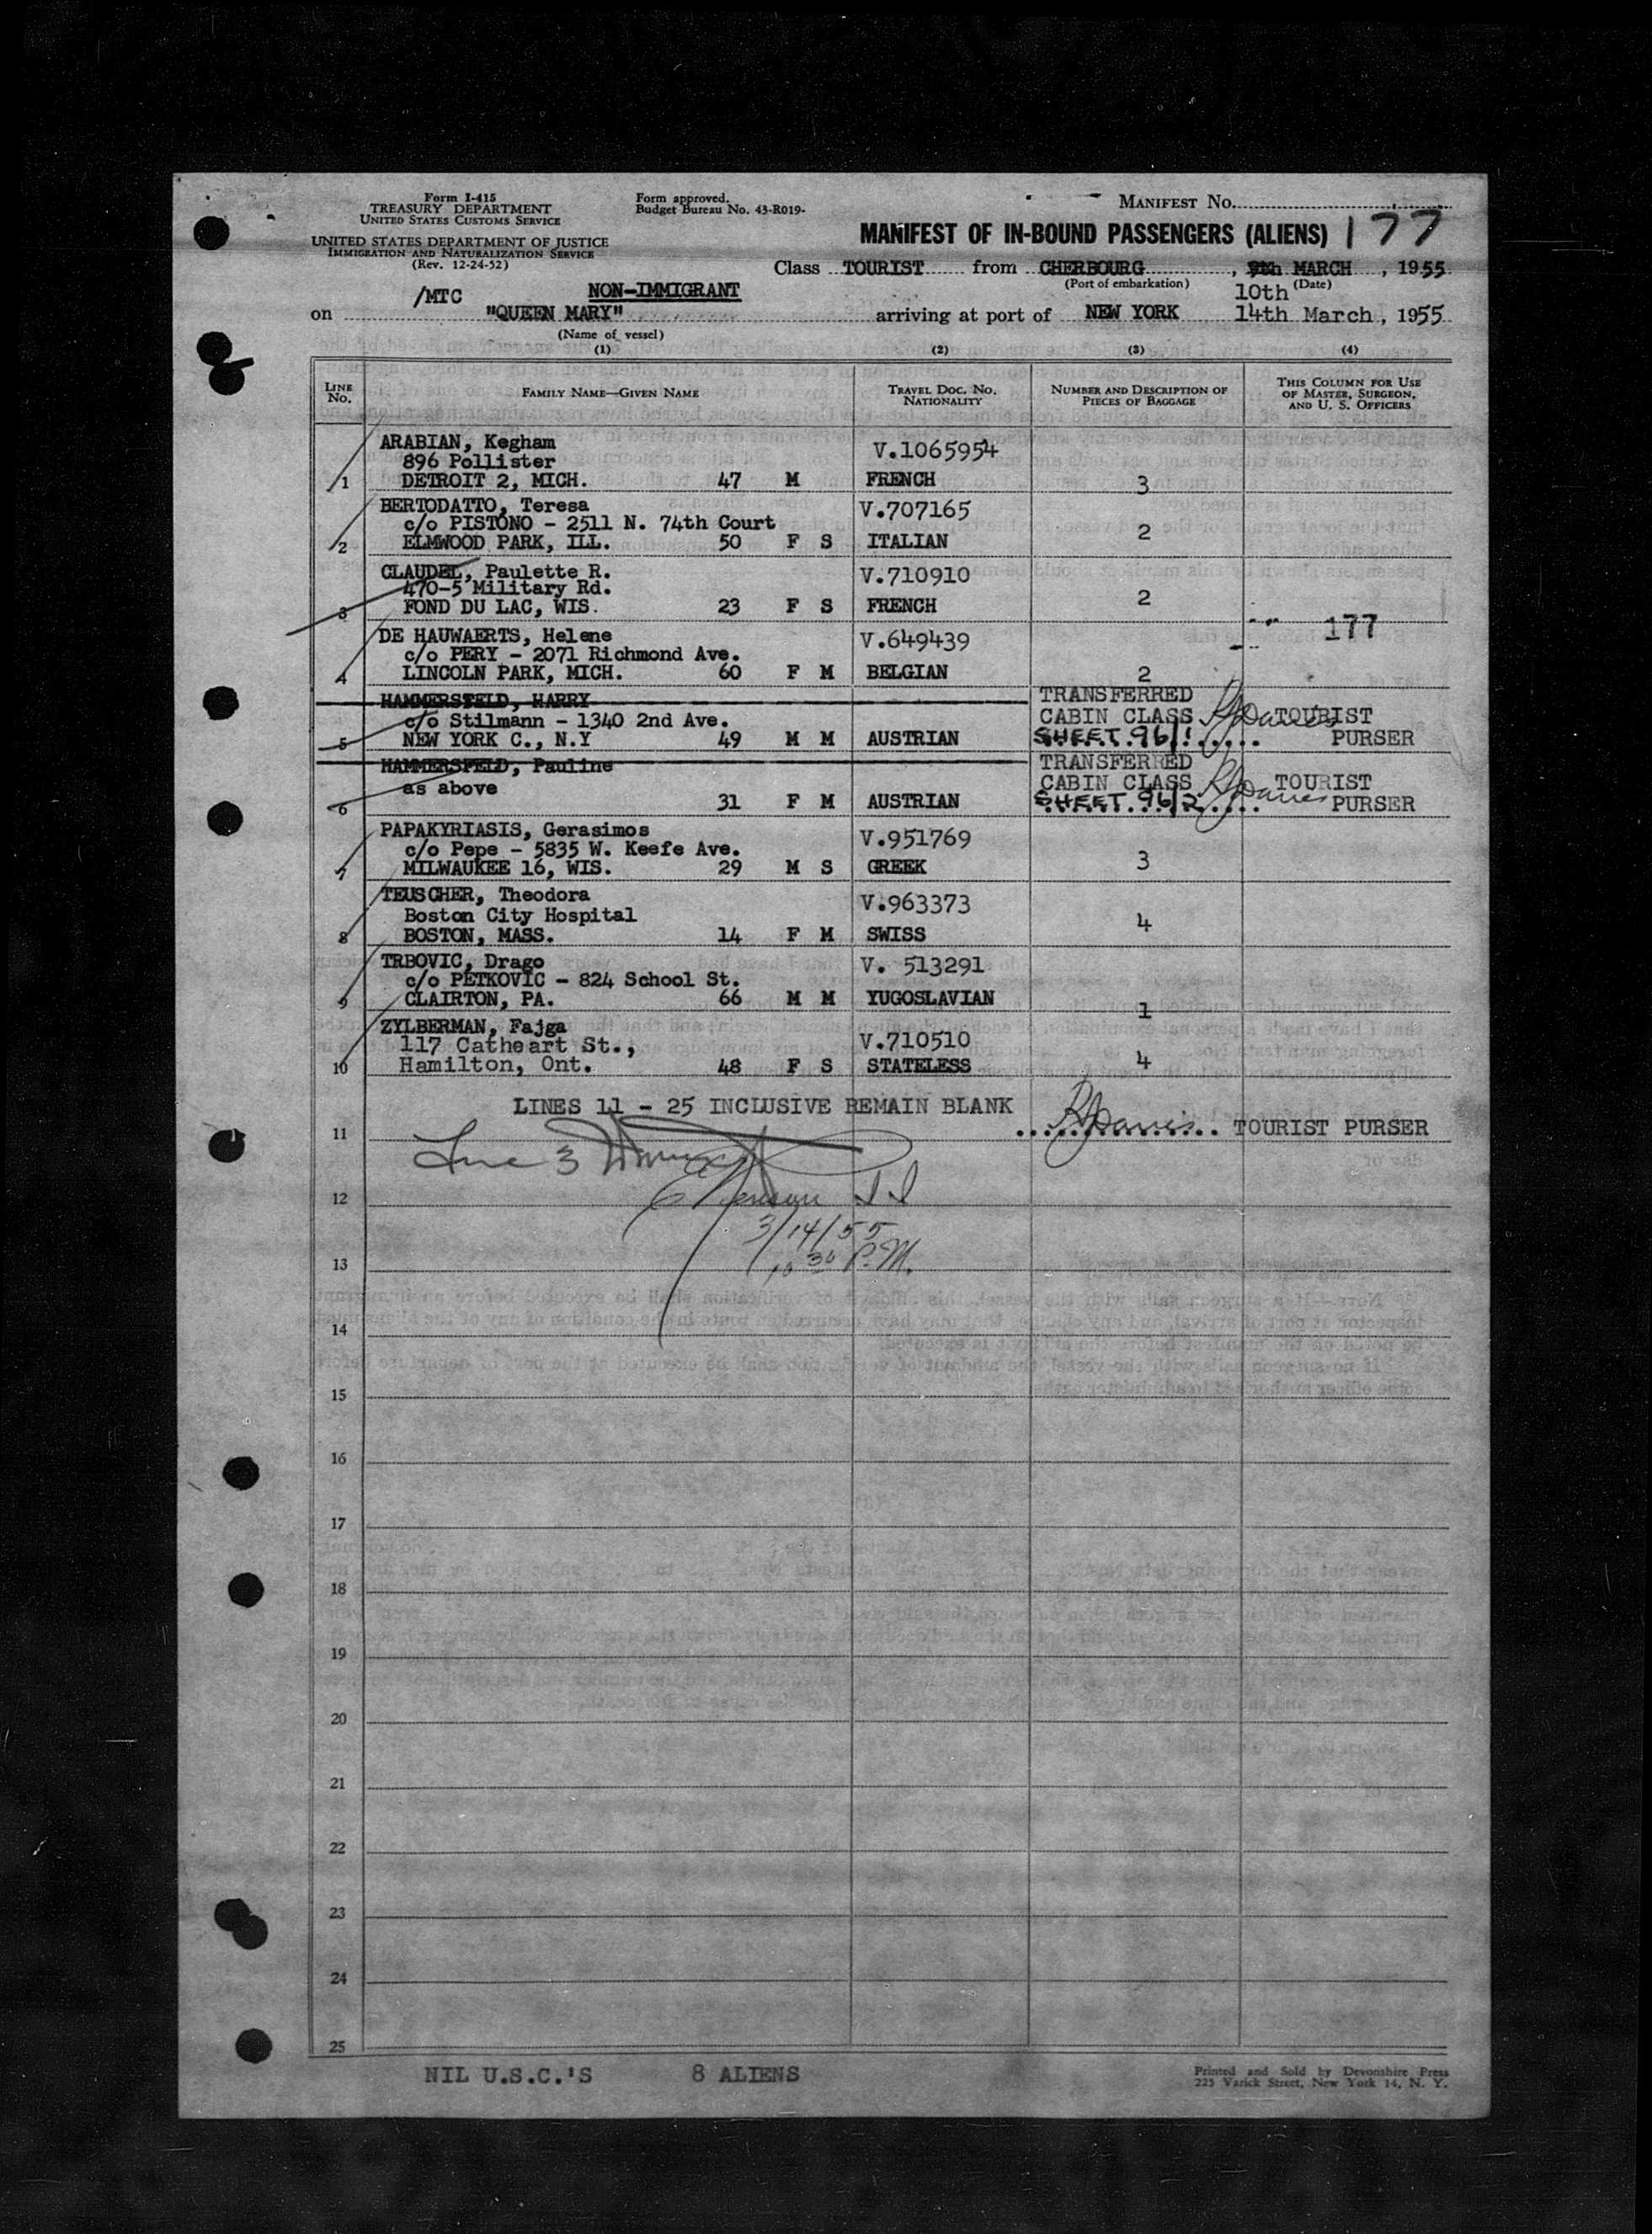 Form I-415
TREASURY DEPARTMENT
UNITED STATES CUSTOMS SERVICE
UNITED STATES DEPARTMENT OF JUSTICE
IMMIGRATION AND NATURALIZATION SERVICE
(Rev. 12-24-52)
Form approved.
Budget Bureau No. 43-R019-
MANIFEST No.
MANIFEST OF IN-BOUND PASSENGERS (ALIENS) 177
Class TOURIST from CHERBOURG, 9th MARCH, 1955
(Port of embarkation) 10th (Date)
/MTC NON-IMMIGRANT
on "QUEEN MARY" arriving at port of NEW YORK 14th March, 1955
(Name of vessel)
(1) (2) (3) (4)
LINE No. FAMILY NAME—GIVEN NAME TRAVEL DOC. NO. NATIONALITY NUMBER AND DESCRIPTION OF PIECES OF BAGGAGE THIS COLUMN FOR USE OF MASTER, SURGEON, AND U. S. OFFICERS
ARABIAN, Kegham V.1065954
896 Pollister
1 DETROIT 2, MICH. 47 M FRENCH 3
BERTODATTO, Teresa V.707165
c/o PISTONO - 2511 N. 74th Court
2 ELMWOOD PARK, ILL. 50 F S ITALIAN 2
CLAUDEL, Paulette R. V.710910
470-5 Military Rd.
3 FOND DU LAC, WIS. 23 F S FRENCH 2
177
DE HAUWAERTS, Helene V.649439
c/o PERY - 2071 Richmond Ave.
4 LINCOLN PARK, MICH. 60 F M BELGIAN 2
HAMMERSFELD, HARRY TRANSFERRED
c/o Stilmann - 1340 2nd Ave. CABIN CLASS TOURIST
5 NEW YORK C., N.Y 49 M M AUSTRIAN SHEET.96/1 PURSER
HAMMERSFELD, Pauline TRANSFERRED
as above CABIN CLASS TOURIST
6 31 F M AUSTRIAN SHEET.96/2 PURSER
PAPAKYRIASIS, Gerasimos V.951769
c/o Pepe - 5835 W. Keefe Ave.
7 MILWAUKEE 16, WIS. 29 M S GREEK 3
TEUSCHER, Theodora V.963373
Boston City Hospital
8 BOSTON, MASS. 14 F M SWISS 4
TRBOVIC, Drago V. 513291
c/o PETKOVIC - 824 School St.
9 CLAIRTON, PA. 66 M M YUGOSLAVIAN 1
ZYLBERMAN, Fajga V.710510
117 Catheart St.,
10 Hamilton, Ont. 48 F S STATELESS 4
LINES 11 - 25 INCLUSIVE REMAIN BLANK
11 TOURIST PURSER
Line 3
12
3/14/55
13 10 30 P.M.
14
15
16
17
18
19
20
21
22
23
24
25
NIL U.S.C.'S 8 ALIENS
Printed and Sold by Devonshire Press
225 Varick Street, New York 14, N. Y.